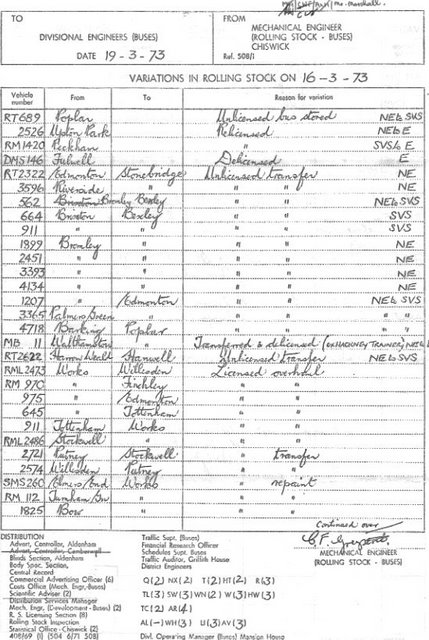 TO
DIVISIONAL ENGINEERS (BUSES)
DATE 19-3-73
FROM
MECHANICAL ENGINEER
(ROLLING STOCK - BUSES)
CHISWICK
Ref. 508/1
VARIATIONS IN ROLLING STOCK ON 16-3-73
Vehicle number From To Reason for variation
RT689 Poplar Unlicensed bus stored NE to SVS
2526 Upton Park Relicensed NE to E
RM1420 Peckham " SVS to E
DMS146 Fulwell Delicensed E
RT2322 Edmonton Stonebridge Unlicensed transfer NE
3596 Riverside " " " NE
562 Brixton Bromley Bexley " " NE to SVS
664 Brixton Bexley " " SVS
911 " " " " SVS
1899 Bromley " " " NE
2451 " " " " NE
3393 " " " " NE
4134 " " " " NE
1207 " Edmonton " " NE to SVS
3365 Palmers Green " " " " "
4718 Barking Poplar " " " "
MB 11 Walthamstow " Transferred & delicensed (ex HACKNEY TRAINER) NE to
RT2622 Harrow Weald Hanwell Unlicensed transfer NE to SVS
RML2473 Works Willesden Licensed overhaul
RM 970 " Finchley " "
975 " Edmonton " "
645 " Tottenham " "
911 Tottenham Works " "
RML2486 Stockwell " " "
2721 Putney Stockwell " transfer
2574 Willesden Putney " "
SMS260 Elmers End Works " repaint
RM 112 Turnham Grn " " "
1825 Bow " " "
Continued over
MECHANICAL ENGINEER
(ROLLING STOCK - BUSES)
DISTRIBUTION
Advert. Controller, Aldenham
Advert. Controller, Camberwell
Blinds Section, Aldenham
Body Spec. Section,
Central Record
Commercial Advertising Officer (6)
Costs Office (Mech. Engr-Buses)
Scientific Adviser (2)
Distribution Services Manager
Mech. Engr, (Development-Buses) (2)
R. S. Licensing Section (8)
Rolling Stock Inspection
Statistical Office-Chiswick (2)
408/69 (1) (504 6/71 508)
Traffic Supt. (Buses)
Financial Research Officer
Schedules Supt. Buses
Traffic Auditor, Griffith House
District Engineers
Q(2) NX(2) T(2) HT(2) R(3)
TL(3) SW(3) WN(2) W(3) HW(3)
TC(2) AR(4)
AL(-) WH(3) U(3) AV(3)
Divl. Operating Manager (Buses) Mansion House